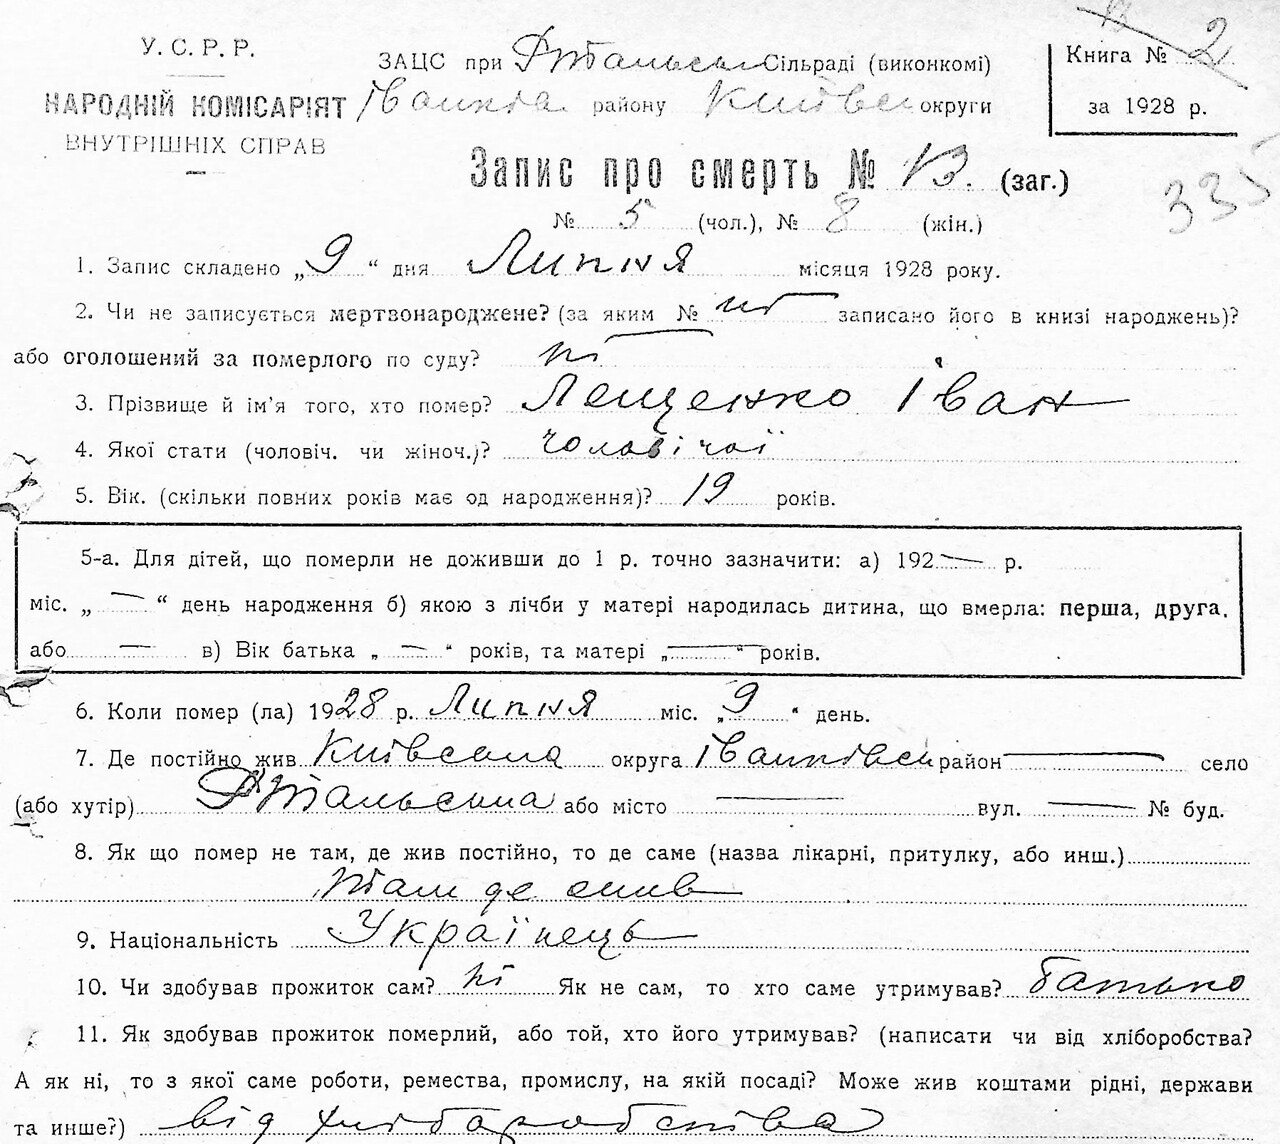 У.С.Р.Р.
НАРОДНІЙ КОМІСАРІЯТ
ВНУТРІШНІХ СПРАВ
ЗАЦС при Сільраді (виконкомі)
району Київсь округи
Книга № 2
за 1928 р.
335
Запис про смерть № 13. (заг.)
№ 5 (чол.), № 8 (жін.)
1. Запис складено „9“ дня Липня місяця 1928 року.
2. Чи не записується мертвонароджене? (за яким № ні записано його в книзі народжень)?
або оголошений за померлого по суду? ні
3. Прізвище й ім’я того, хто помер? Лещенко Іван
4. Якої стати (чоловіч. чи жіноч.)? чоловічої
5. Вік. (скільки повних років має од народження)? 19 років.
5-а. Для дітей, що померли не доживши до 1 р. точно зазначити: а) 192— р.
міс. „—“ день народження б) якою з лічби у матері народилась дитина, що вмерла: перша, друга,
або — в) Вік батька „—“ років, та матері „—“ років.
6. Коли помер (ла) 1928 р. Липня міс. „9“ день.
7. Де постійно жив Київська округа Іванківськ район — село
(або хутір) або місто — вул. — № буд.
8. Як що помер не там, де жив постійно, то де саме (назва лікарні, притулку, або инш.)
там де жив
9. Національність Українець
10. Чи здобував прожиток сам? ні Як не сам, то хто саме утримував? батько
11. Як здобував прожиток померлий, або той, хто його утримував? (написати чи від хліборобства?
А як ні, то з якої саме роботи, ремества, промислу, на якій посаді? Може жив коштами рідні, держави
та инше?) від хліборобства